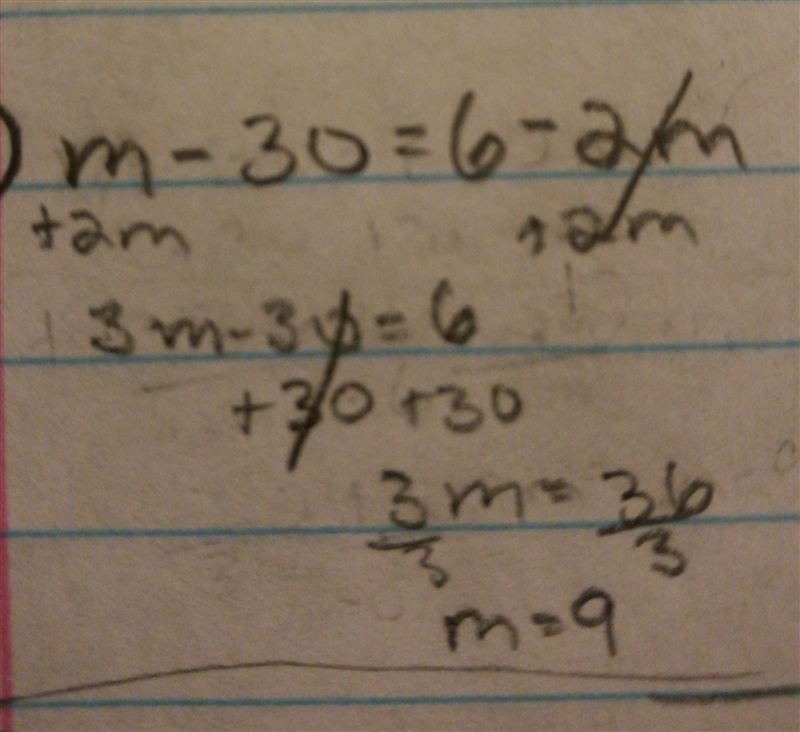 ) m - 30 = 6 - 2m
+2m +2m
3m - 30 = 6
+30 +30
3m = 36
3 3
m = 9